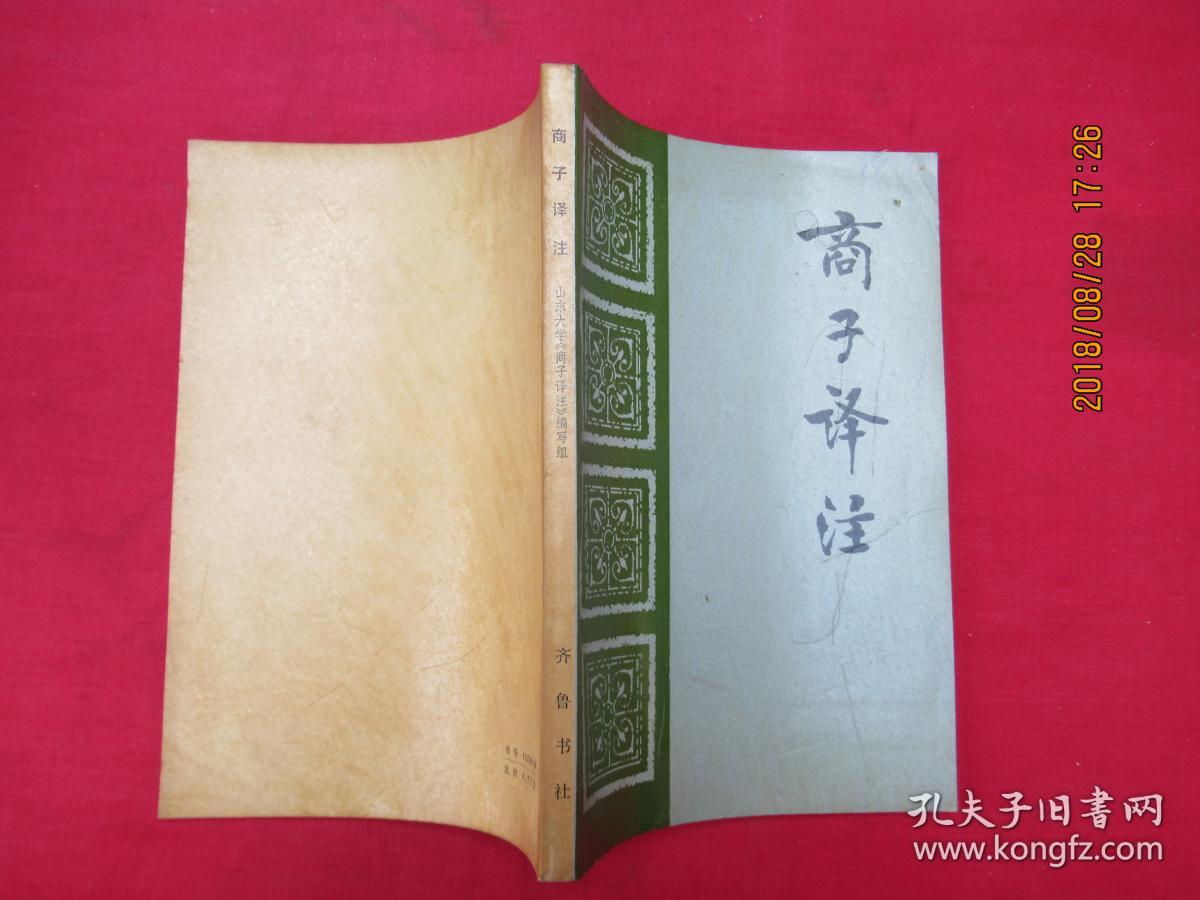 商子译注
商子译注
山东大学《商子译注》编写组
齐鲁书社
书号
定价
2018/08/28 17:26
孔夫子旧書网
www.kongfz.com